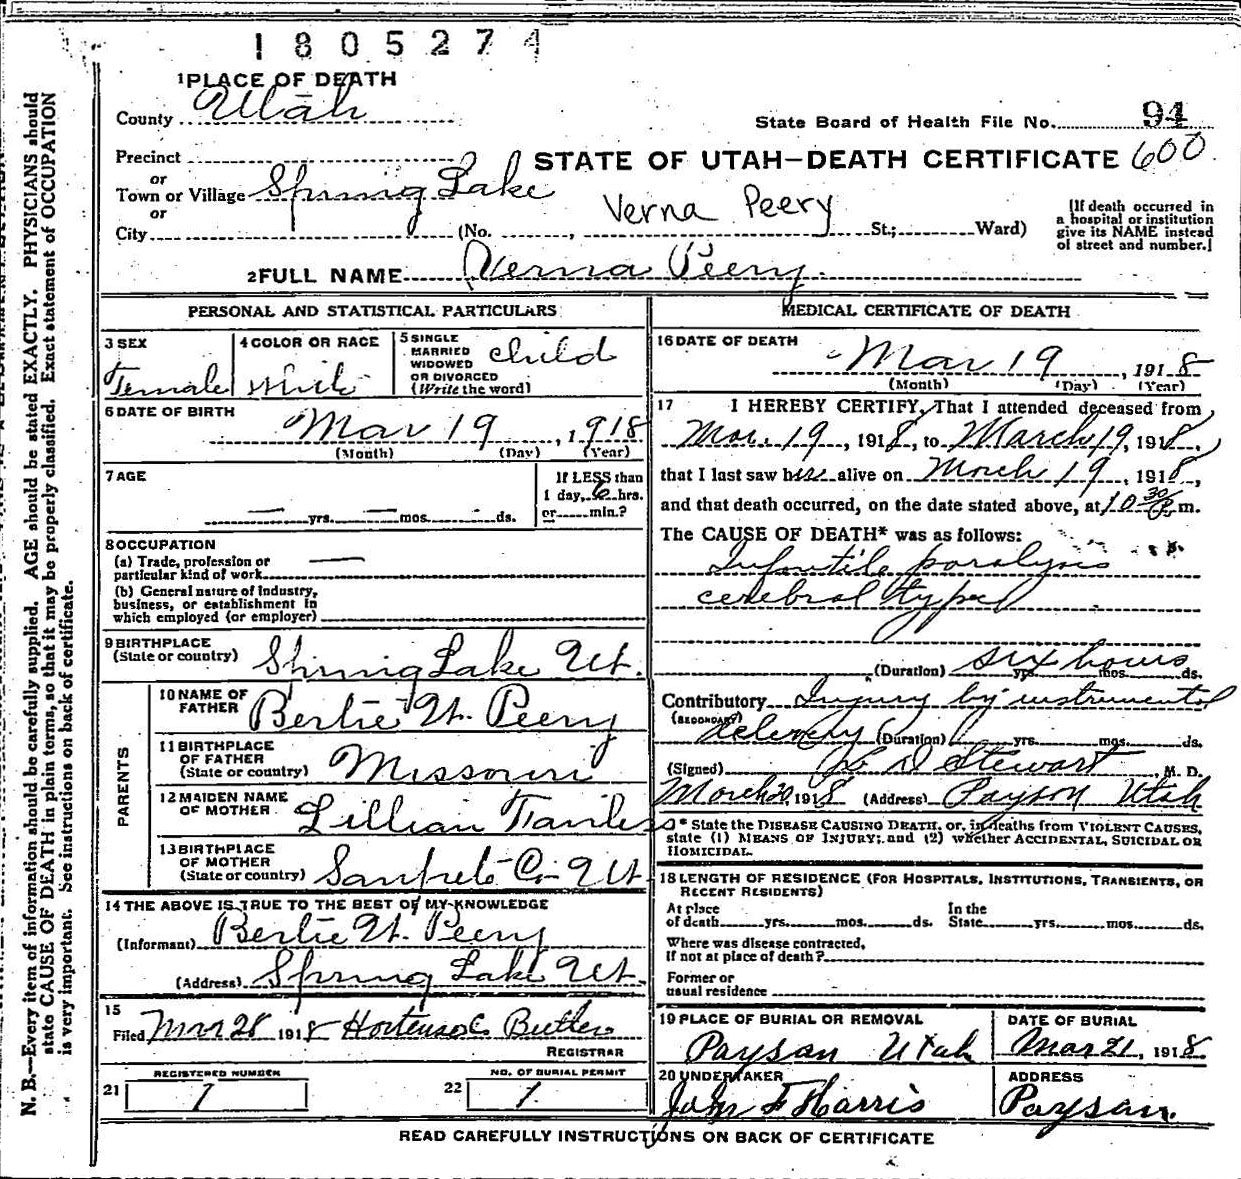 1805274
1 PLACE OF DEATH
County Utah
State Board of Health File No. 94
Precinct
STATE OF UTAH—DEATH CERTIFICATE 600
or
Town or Village Spring Lake
or
Verna Peery
City (No. , St.; Ward)
[If death occurred in
a hospital or institution
give its NAME instead
of street and number.]
2 FULL NAME Verna Peery
PERSONAL AND STATISTICAL PARTICULARS
3 SEX
Female
4 COLOR OR RACE
White
5 SINGLE
MARRIED
WIDOWED
OR DIVORCED
(Write the word)
child
6 DATE OF BIRTH
Mar 19, 1918
(Month) (Day) (Year)
7 AGE
— yrs. — mos. ds.
If LESS than
1 day, 6 hrs.
or min.?
8 OCCUPATION
(a) Trade, profession or
particular kind of work —
(b) General nature of Industry,
business, or establishment in
which employed (or employer)
9 BIRTHPLACE
(State or country) Spring Lake Ut.
PARENTS
10 NAME OF
FATHER Bertie W. Peery
11 BIRTHPLACE
OF FATHER
(State or country) Missouri
12 MAIDEN NAME
OF MOTHER Lillian
13 BIRTHPLACE
OF MOTHER
(State or country) Sanpete Co— Ut
14 THE ABOVE IS TRUE TO THE BEST OF MY KNOWLEDGE
(Informant) Bertie W. Peery
(Address) Spring Lake Ut
15
Filed Mar 28 1918 Hortense C Butler
REGISTRAR
REGISTERED NUMBER
21 1
NO. OF BURIAL PERMIT
22 1
MEDICAL CERTIFICATE OF DEATH
16 DATE OF DEATH
Mar 19, 1918
(Month) (Day) (Year)
17 I HEREBY CERTIFY, That I attended deceased from
Mar. 19, 1918, to March 19, 1918,
that I last saw her alive on March 19, 1918,
and that death occurred, on the date stated above, at 10 30 P. m.
The CAUSE OF DEATH* was as follows:
Infantile paralysis
cerebral type
(Duration) six hours yrs. mos. ds.
Contributory Injury by instrumental
(SECONDARY)
delivery (Duration) yrs. mos. ds.
(Signed) D Stewart, M. D.
March 20, 1918 (Address) Payson Utah
* State the DISEASE CAUSING DEATH, or, in deaths from VIOLENT CAUSES,
state (1) MEANS OF INJURY; and (2) whether ACCIDENTAL, SUICIDAL OR
HOMICIDAL.
18 LENGTH OF RESIDENCE (FOR HOSPITALS, INSTITUTIONS, TRANSIENTS, OR
RECENT RESIDENTS)
At place
of death yrs. mos. ds.
In the
State yrs. mos. ds.
Where was disease contracted,
If not at place of death?
Former or
usual residence
19 PLACE OF BURIAL OR REMOVAL
Payson Utah
DATE OF BURIAL
Mar 21, 1918
20 UNDERTAKER
John F Harris
ADDRESS
Payson.
READ CAREFULLY INSTRUCTIONS ON BACK OF CERTIFICATE
N. B.—Every item of information should be carefully supplied. AGE should be stated EXACTLY. PHYSICIANS should
state CAUSE OF DEATH in plain terms, so that it may be properly classified. Exact statement of OCCUPATION
is very important. See instructions on back of certificate.